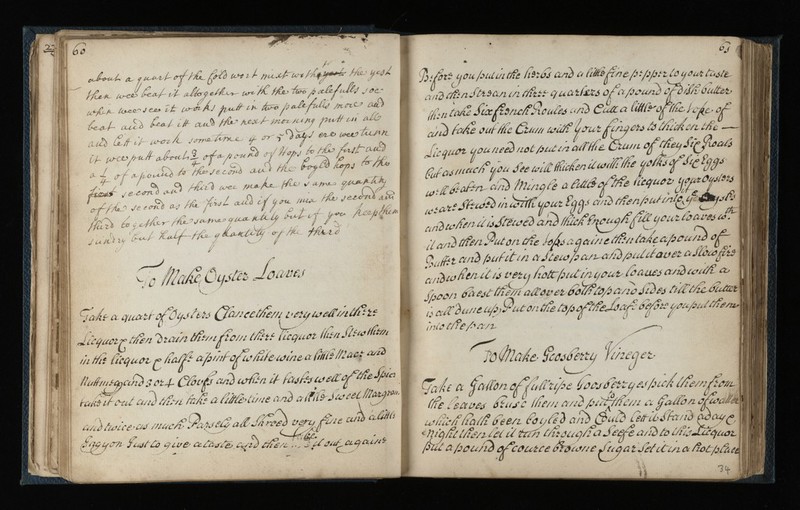 60
about a quart of the Cold wort mixt with the yest
then wee beat it altogether with the two palefulls soe
when wee see it works putt in two palefulls more and
beat and beat itt and the next morning putt in all
and lett it work sometime 4 or 5 days ere wee tunn
it wee putt about of a pound of Hops to the first and
a 1/4 of a pound to the second and the boyld hops to the
second and third wee make the same quantity
of the second as the first and if you mix the second and
third together the same quantity but if you keep them
sundry but half the quantity of the third
To Make Oyster Loaves
Take a quart of Oysters Clance them very well in there
Licquor then Drain them from there licquor then Stew them
in the licquor & halfe a pint of white wine a little Mace and
Nuttmeg and 3 or 4 Cloves and when it tasts well of the Spice
take it out and then take a little time and a little Sweet Margrom
and twice as much Parsely all Shreed very fine and a little
Engyon Just to give a taste and then take it out againe
63
Before you put in the herbs and a little fine pepper to your taste
and then Strean in three quarters of a pound of dish butter
then take Six french Roules and Cutt a little of the tope of
and take out the Crum with your fingers to thicken the
Licquor you need not put in all the Crum of they Six Roals
but as much you See will thicken it with the yolks of Six Eggs
well beaten and Mingle a little of the licquor your oysters
weare Stewed in with your Eggs and then put into
and when it is Stewed and thick Enough fill your loaves wth
it and then Put on the tops againe then take a pound of
Butter and put it in a Stew pan and put it over a Slow fire
and when it is very hott put in your loaves and with a
Spoon baest them all over both top and Sides till the butter
is all dune up; Put on the top of the Loafe before you put them
into the pan
To Make Goosberry Vineger
Take a Gallon of full ripe Goosberryes pick them from
the leaves bruse them and put them a Gallon of watter
which hath been boyled and Could let it Stand a day &
night then let it run through a Seefe and to this Licquor
put a pound of cource browne Sugar Set it in a hot place
34